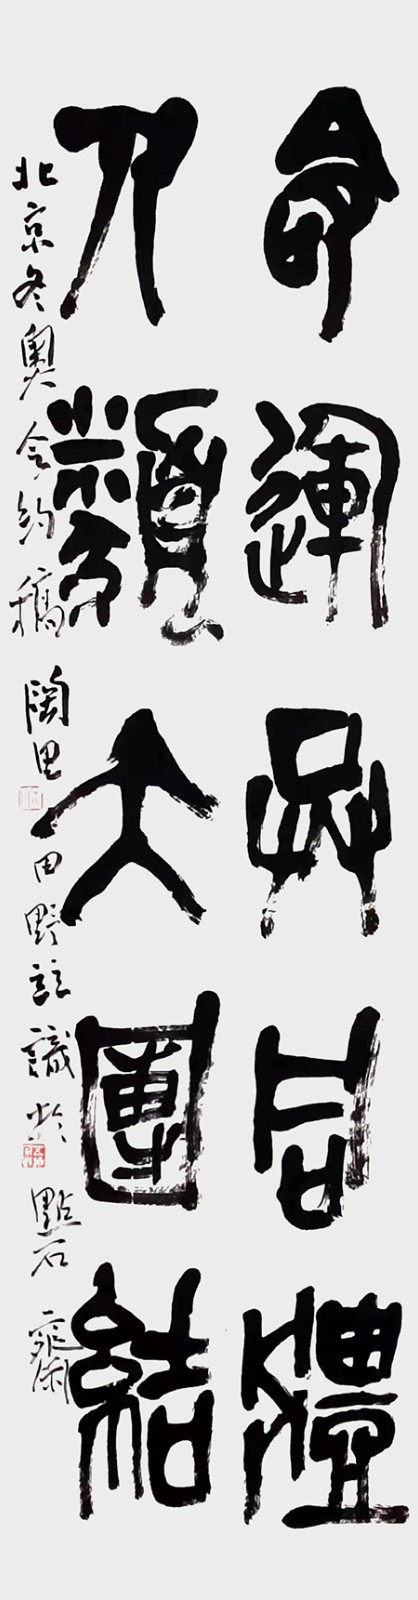 命運共同體
人類大團結
北京冬奧會約稿 陶里 田野諒識於 點石齋